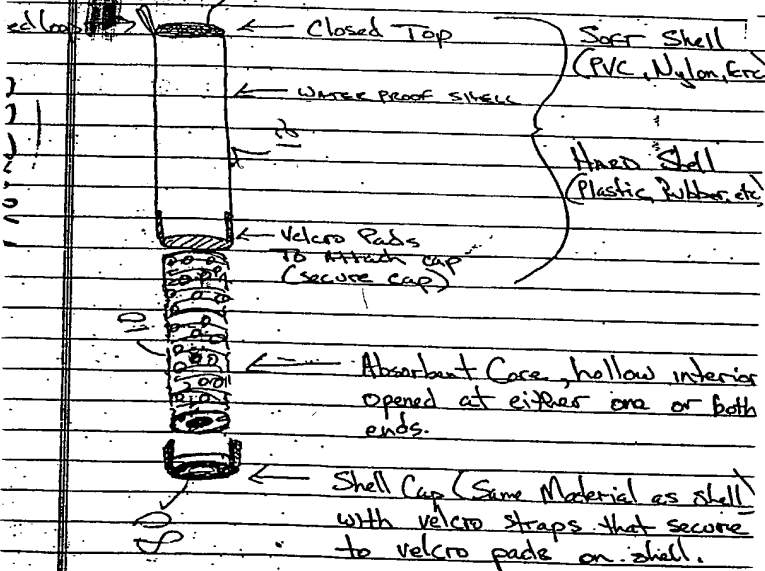 ed loop
Closed Top
Soft Shell
(PVC, Nylon, Etc)
WATER PROOF SHELL
12
Hard Shell
(Plastic, Rubber, etc)
Velcro Pads
To Attach cap
(secure cap)
10
Absorbent Core, hollow interior
opened at either one or both
ends.
Shell Cap (Same Material as shell)
with velcro straps that secure
to velcro pads on shell.